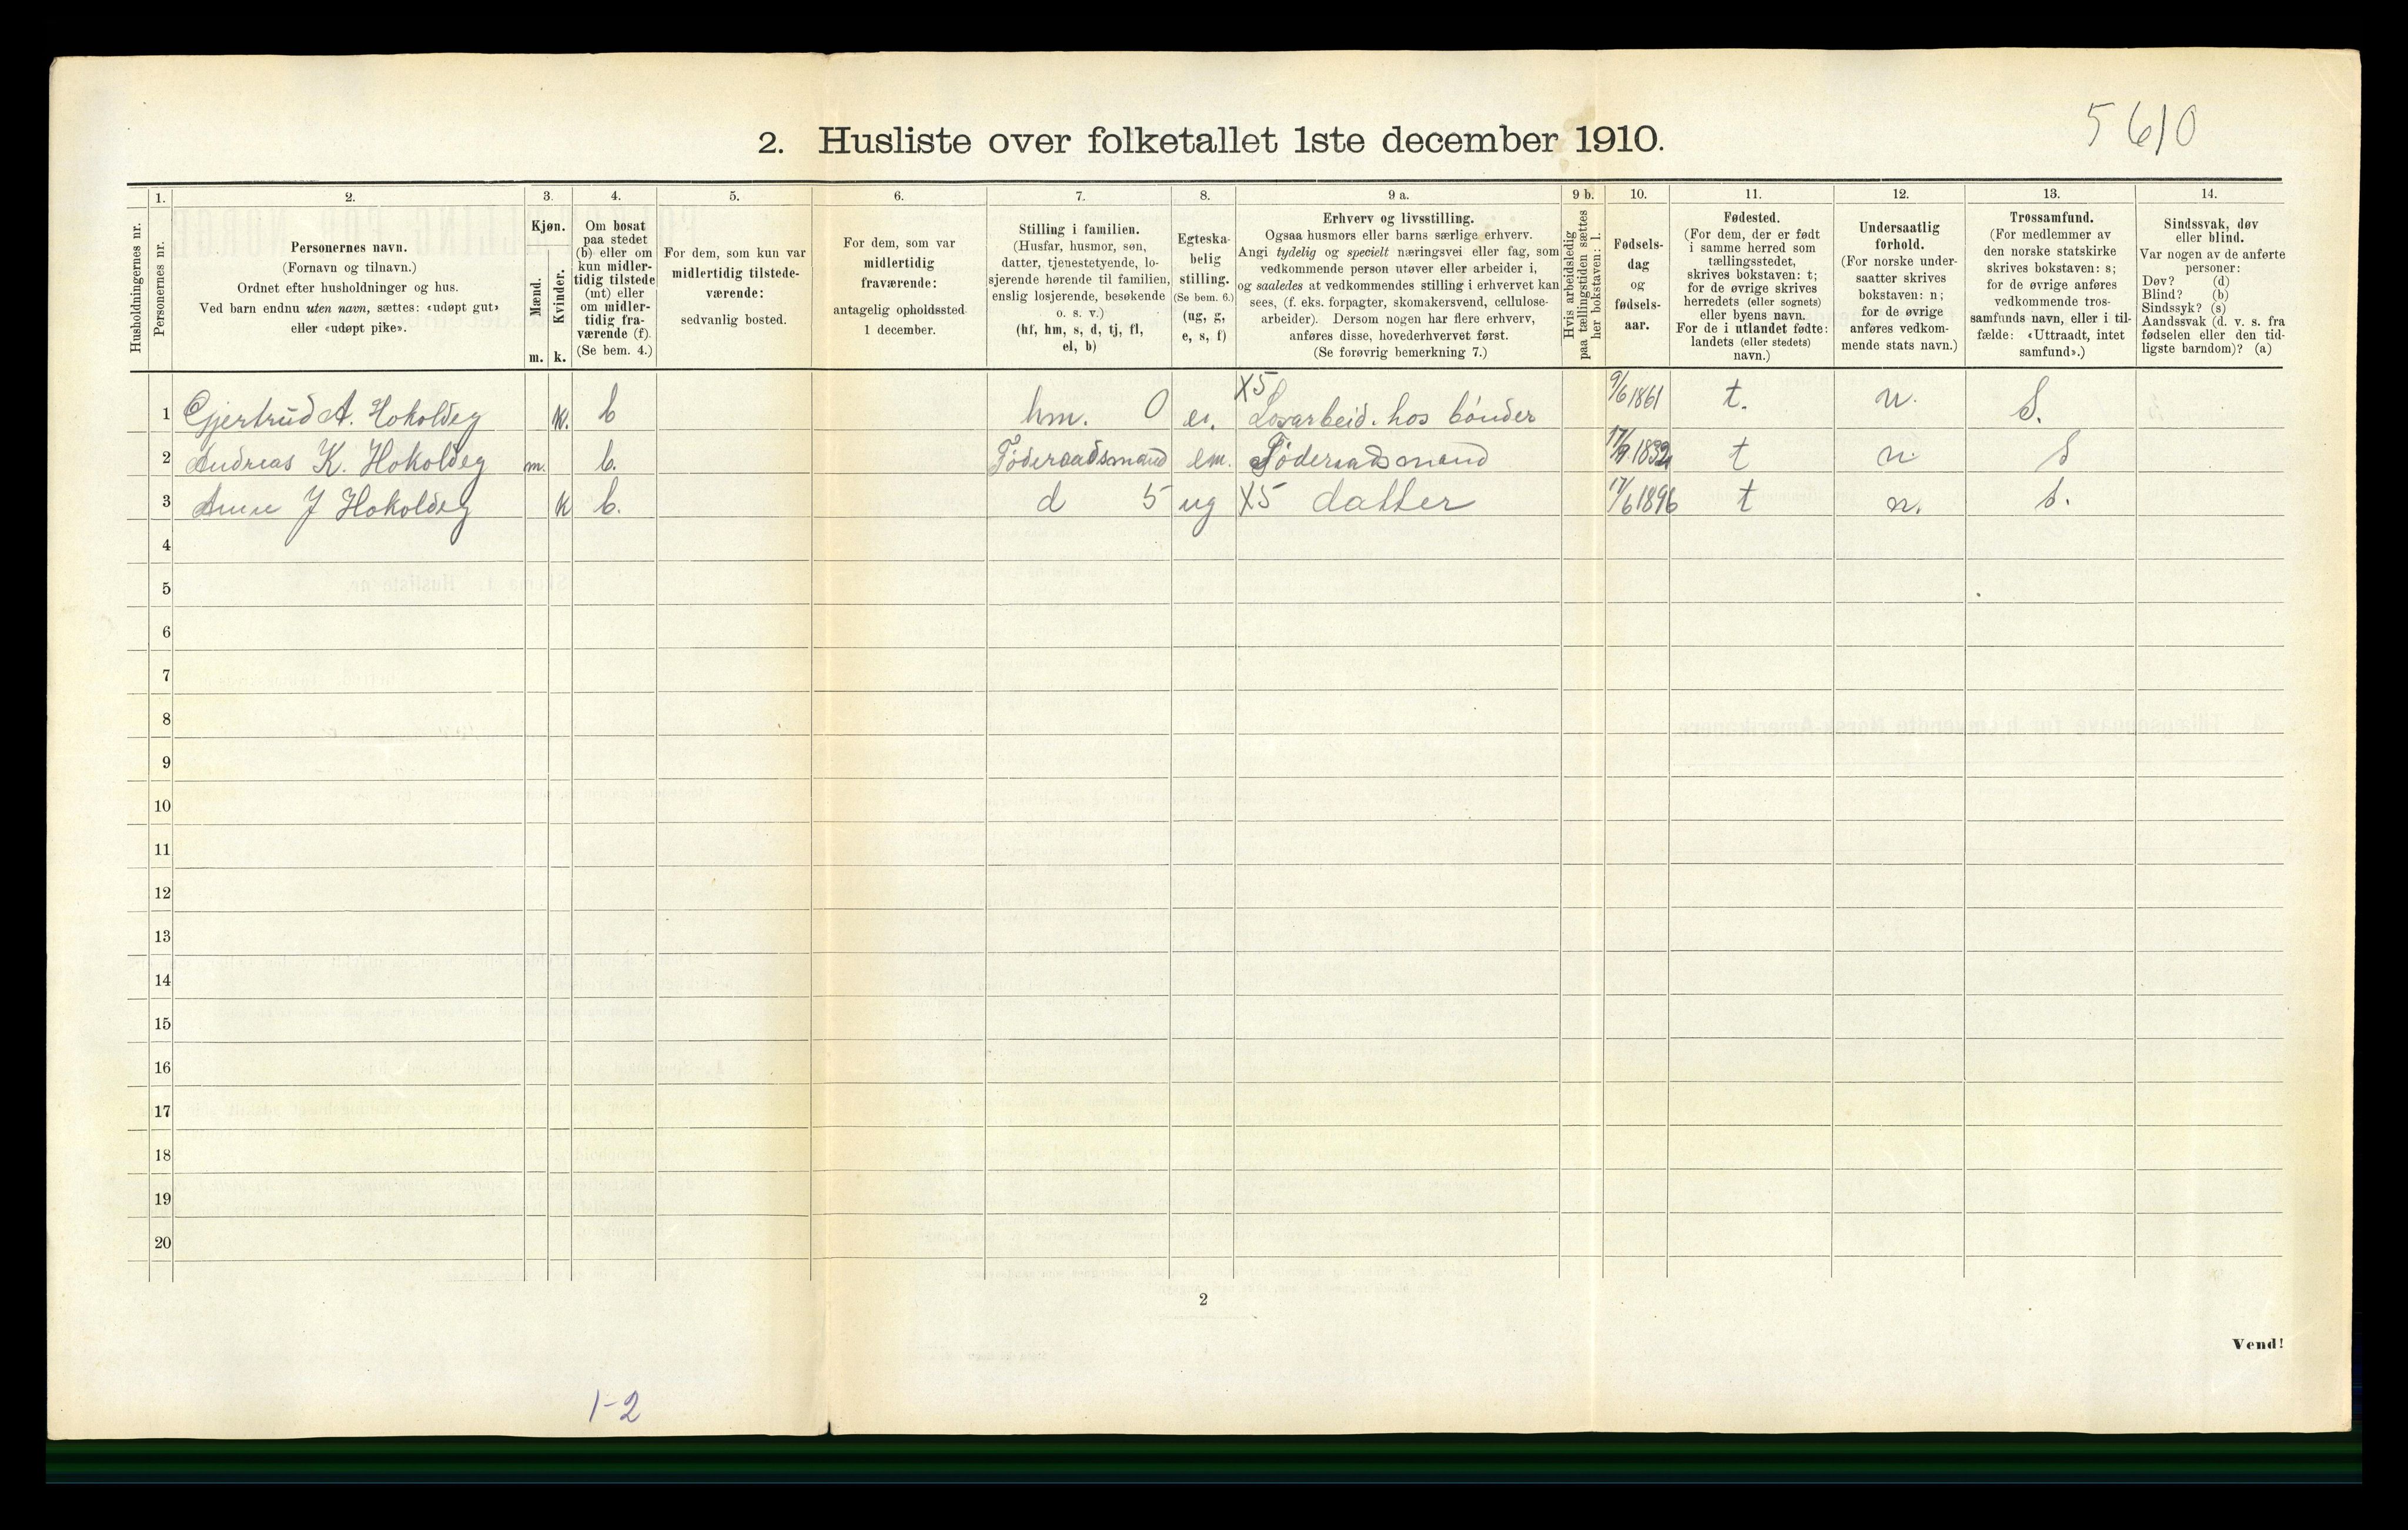 5610
2. Husliste over folketallet 1ste december 1910.
1. 2. 3. 4. 5. 6. 7. 8. 9 a. 9 b. 10. 11. 12. 13. 14.
Husholdningernes nr.
Personernes nr.
Personernes navn.
(Fornavn og tilnavn.)
Ordnet efter husholdninger og hus.
Ved barn endnu uten navn, sættes: «udøpt gut»
eller «udøpt pike».
Kjøn.
Mænd.
Kvinder.
m. k.
Om bosat
paa stedet
(b) eller om
kun midler-
tidig tilstede
(mt) eller
om midler-
tidig fra-
værende (f).
(Se bem. 4.)
For dem, som kun var
midlertidig tilstede-
værende:
sedvanlig bosted.
For dem, som var
midlertidig
fraværende:
antagelig opholdssted
1 december.
Stilling i familien.
(Husfar, husmor, søn,
datter, tjenestetyende, lo-
sjerende hørende til familien,
enslig losjerende, besøkende
o. s. v.)
(hf, hm, s, d, tj, fl,
el, b)
Egteska-
belig
stilling.
(Se bem. 6.)
(ug, g,
e, s, f)
Erhverv og livsstilling.
Ogsaa husmors eller barns særlige erhverv.
Angi tydelig og specielt næringsvei eller fag, som
vedkommende person utøver eller arbeider i,
og saaledes at vedkommendes stilling i erhvervet kan
sees, (f. eks. forpagter, skomakersvend, cellulose-
arbeider). Dersom nogen har flere erhverv,
anføres disse, hovederhvervet først.
(Se forøvrig bemerkning 7.)
Hvis arbeidsledig
paa tællingstiden sættes
her bokstaven: l.
Fødsels-
dag
og
fødsels-
aar.
Fødested.
(For dem, der er født
i samme herred som
tællingsstedet,
skrives bokstaven: t;
for de øvrige skrives
herredets (eller sognets)
eller byens navn.
For de i utlandet fødte:
landets (eller stedets)
navn.)
Undersaatlig
forhold.
(For norske under-
saatter skrives
bokstaven: n;
for de øvrige
anføres vedkom-
mende stats navn.)
Trossamfund.
(For medlemmer av
den norske statskirke
skrives bokstaven: s;
for de øvrige anføres
vedkommende tros-
samfunds navn, eller i til-
fælde: «Uttraadt, intet
samfund».)
Sindssvak, døv
eller blind.
Var nogen av de anførte
personer:
Døv? (d)
Blind? (b)
Sindssyk? (s)
Aandssvak (d. v. s. fra
fødselen eller den tid-
ligste barndom)? (a)
1 Gjertrud A. Hokoldeg k. b hm. 0 e. X5 Løsarbeid. hos bønder 9/6 1861 t. n. S.
2 Andreas K. Hokoldeg m. b. Føderaadsmand em. Føderaadsmand t n. S
3 Anne J Hokoldeg k b. d 5 ug X5 datter 17/6 1896 t n. s.
4
5
6
7
8
9
10
11
12
13
14
15
16
17
18
19
20
2
Vend!
1-2